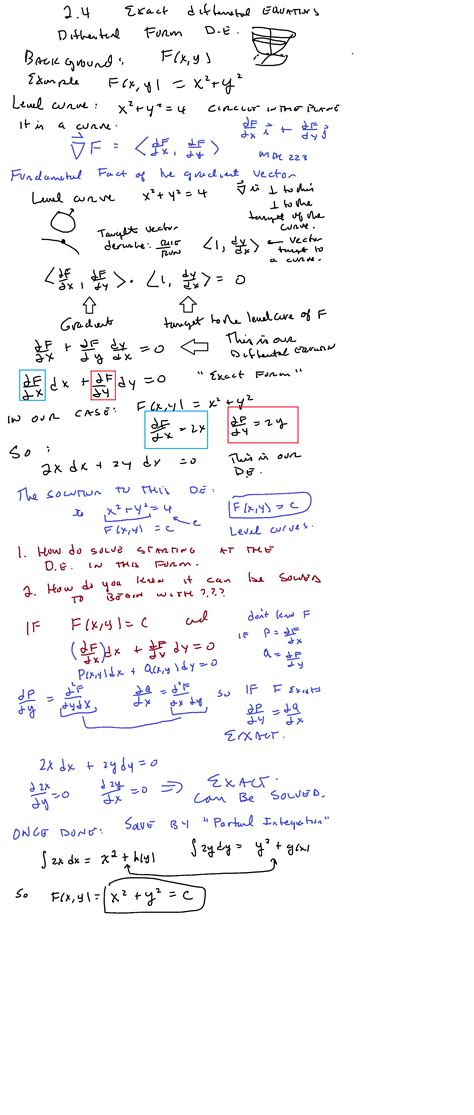 2.4 Exact differential EQUATIONS
Differential Form D.E.
Background: F(x,y)
Example F(x,y) = x²+y²
Level curve: x²+y²=4 CIRCLE IN THE PLANE
It is a curve.
∇F = ⟨∂F/∂x, ∂F/∂y⟩ ∂F/∂x i + ∂F/∂y j
MTH 223
Fundamental Fact of the gradient vector
Level curve x²+y²=4 ∇ is ⊥ to this
⊥ to the
tangent of the
curve.
Tangent vector
derivative: RISE/RUN ⟨1, dy/dx⟩ ← vector
tangent to
a curve.
⟨∂F/∂x, ∂F/∂y⟩ · ⟨1, dy/dx⟩ = 0
Gradient tangent to the level curve of F
∂F/∂x + ∂F/∂y dy/dx = 0 ⇐ This is our
Differential Equation
∂F/∂x dx + ∂F/∂y dy = 0 "Exact Form"
IN OUR CASE: F(x,y) = x²+y²
∂F/∂x = 2x ∂F/∂y = 2y
So:
2x dx + 2y dy = 0 This is our
D.E.
The solution to this D.E.
is x²+y²=4 F(x,y) = c
F(x,y) = c c Level curves.
1. How do solve starting at the
D.E. in this form.
2. How do you know it can be solved
to begin with???
IF F(x,y) = c and don't know F
(∂F/∂x)dx + ∂F/∂y dy = 0 IF P = ∂F/∂x
P(x,y)dx + Q(x,y)dy = 0 Q = ∂F/∂y
∂P/∂y = ∂²F/∂y∂x ∂Q/∂x = ∂²F/∂x∂y so IF F Exists
∂P/∂y = ∂Q/∂x
EXACT.
2x dx + 2y dy = 0
∂2x/∂y = 0 ∂2y/∂x = 0 ⇒ EXACT
Can Be Solved.
ONCE DONE: Solve By "Partial Integration"
∫2x dx = x² + h(y) ∫2y dy = y² + g(x)
So F(x,y) = x² + y² = c